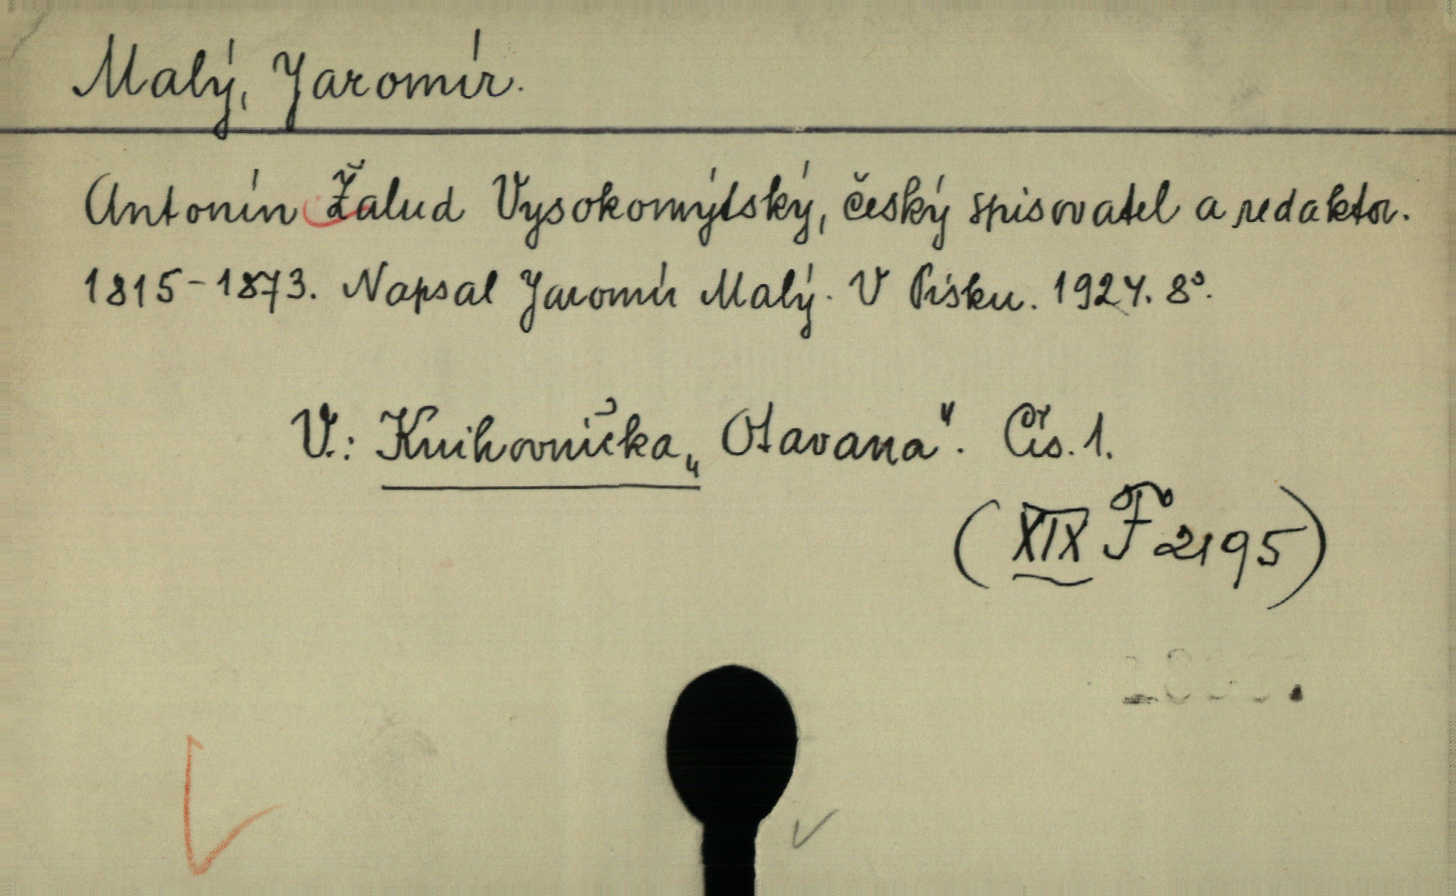 Malý, Jaromír.
Antonín Žalud Vysokomýtský, český spisovatel a redaktor.
1815-1873. Napsal Jaromír Malý. V Písku. 1924. 8°.
V.: Knihovnička „Otavana". Čís. 1.
(XIX F 2195)